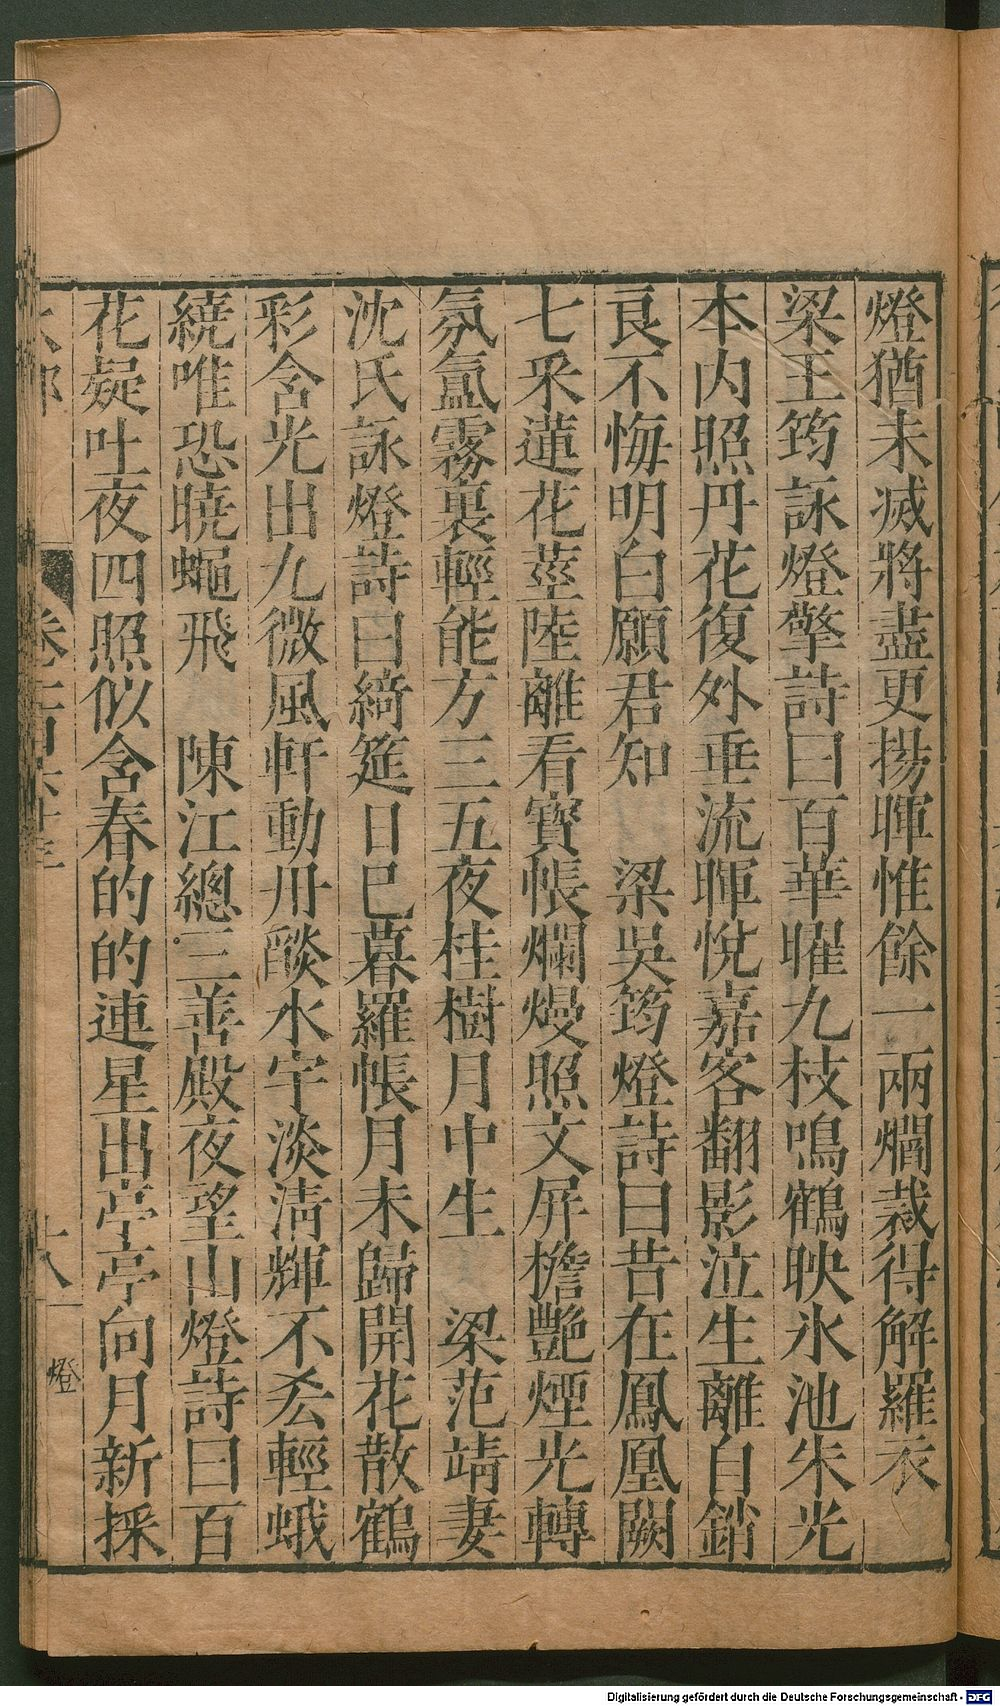 燈猶未滅將盡更揚暉惟餘一兩燗裁得解羅衣
梁王筠詠燈擎詩曰百華曜九枝鳴鶴映氷池朱光
本內照丹花復外垂流暉悅嘉客翻影泣生離自銷
良不悔明白願君知　梁吳筠燈詩曰昔在鳳凰闕
七采蓮花莖陸離看寶帳爛熳照文屏檐艷煙光轉
氛氳霧裏輕能方三五夜桂樹月中生　梁范靖妻
沈氏詠燈詩曰綺筵日已暮羅帳月未歸開花散鶴
彩含光出九微風軒動丹燄水宇淡清輝不𠫤輕蛾
繞唯恐曉蠅飛　陳江總三善殿夜望山燈詩曰百
花疑吐夜四照似含春的的連星出亭亭向月新採
卷
十八
燈
Digitalisierung gefördert durch die Deutsche Forschungsgemeinschaft - DFG